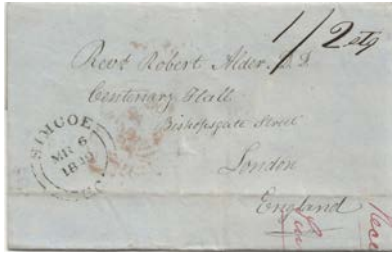 1/2 stg
Revd Robert Alder D.D.
Centenary Hall
Bishopsgate Street
London
England
SIMCOE
MR 6